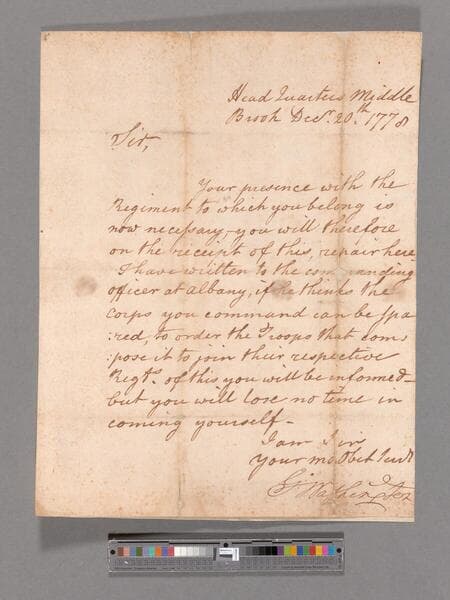 Head Quarters Middle
Brook Decr. 20th. 1778
Sir,
Your presence with the
Regiment to which you belong is
now necessary - you will therefore
on the receipt of this, repair here
I have written to the commanding
officer at Albany, if he thinks the
corps you command can be spa
:red, to order the Troops that com
:pose it to join their respective
Regts. of this you will be informed -
but you will lose no time in
coming yourself -
I am Sir
Your mo Obet Servt
Go Washington